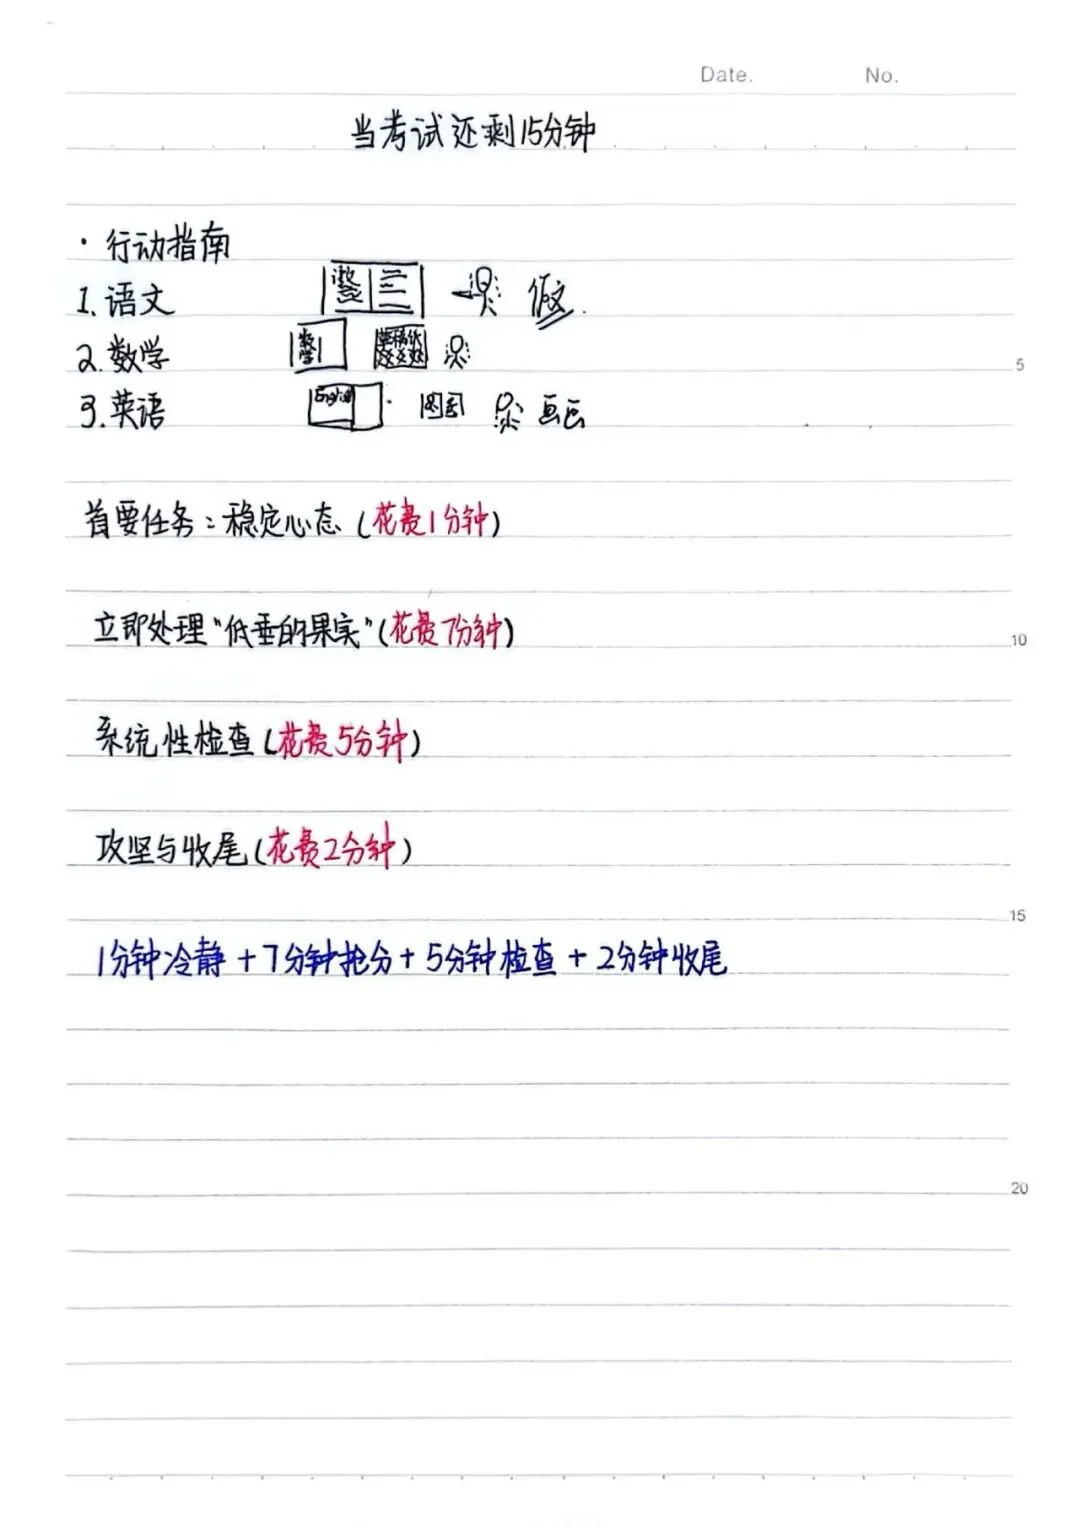 Date. No.
当考试还剩15分钟
· 行动指南
1. 语文
2. 数学
3. 英语 English
首要任务：稳定心态（花费1分钟）
立即处理“低垂的果实”（花费7分钟）
系统性检查（花费5分钟）
攻坚与收尾（花费2分钟）
1分钟冷静+7分钟抢分+5分钟检查+2分钟收尾
5
10
15
20